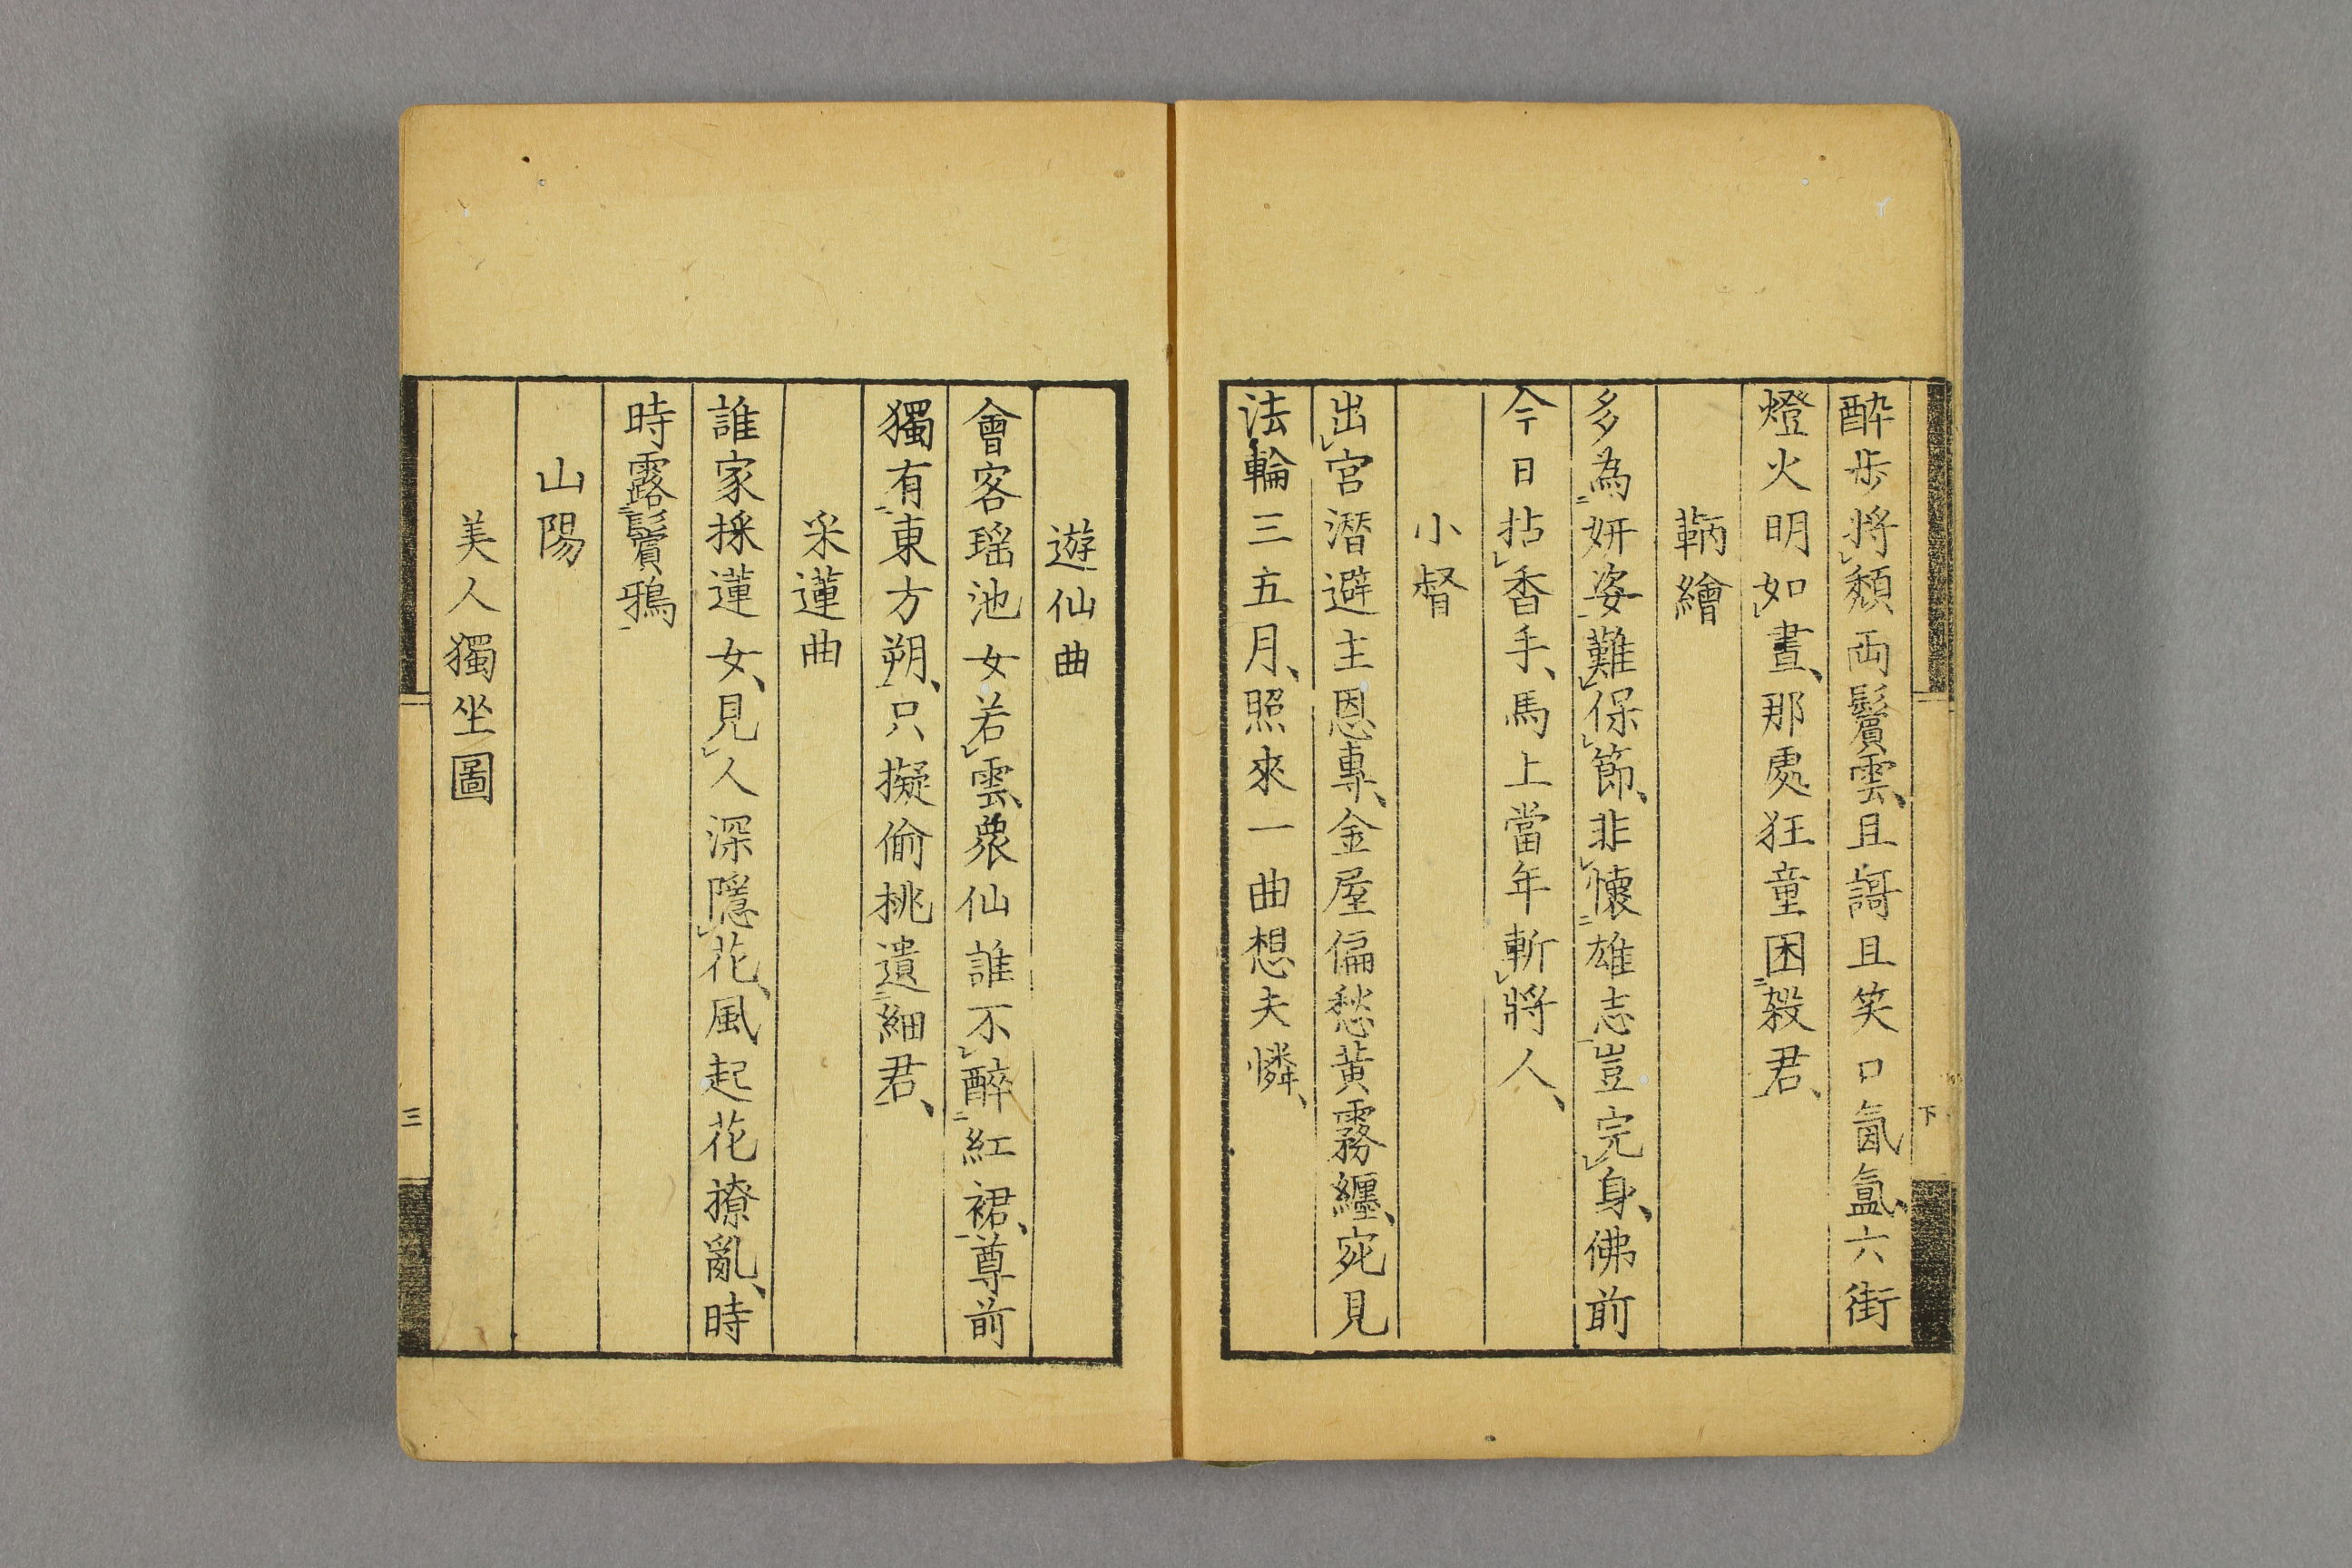 酔歩將頽両鬢雲、且謌且笑口氤氳、六街
燈火明如晝、那處狂童困殺君、
鞆繪
多為妍姿難保節、非懷雄志豈完身、佛前
今日拈香手、馬上當年斬將人、
小督
出宮潜避主恩專、金屋偏愁黄霧纏、宛見
法輪三五月、照來一曲想夫憐、
下
遊仙曲
會客瑶池女若雲、衆仙誰不醉紅裙、尊前
獨有東方朔、只擬偷桃遺細君、
采蓮曲
誰家採蓮女、見人深隱花、風起花撩亂、時
時露鬢鴉
山陽
美人獨坐圖
三